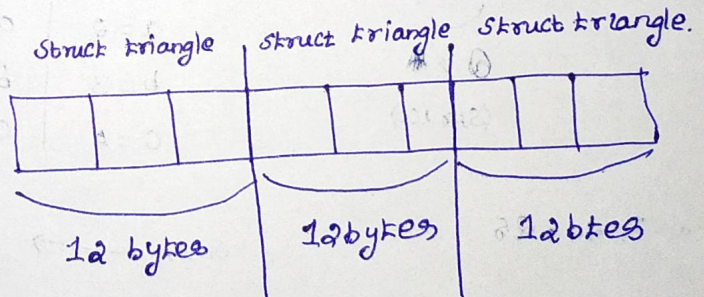 Struct triangle Struct triangle Struct triangle.
12 bytes 12bytes 12btes